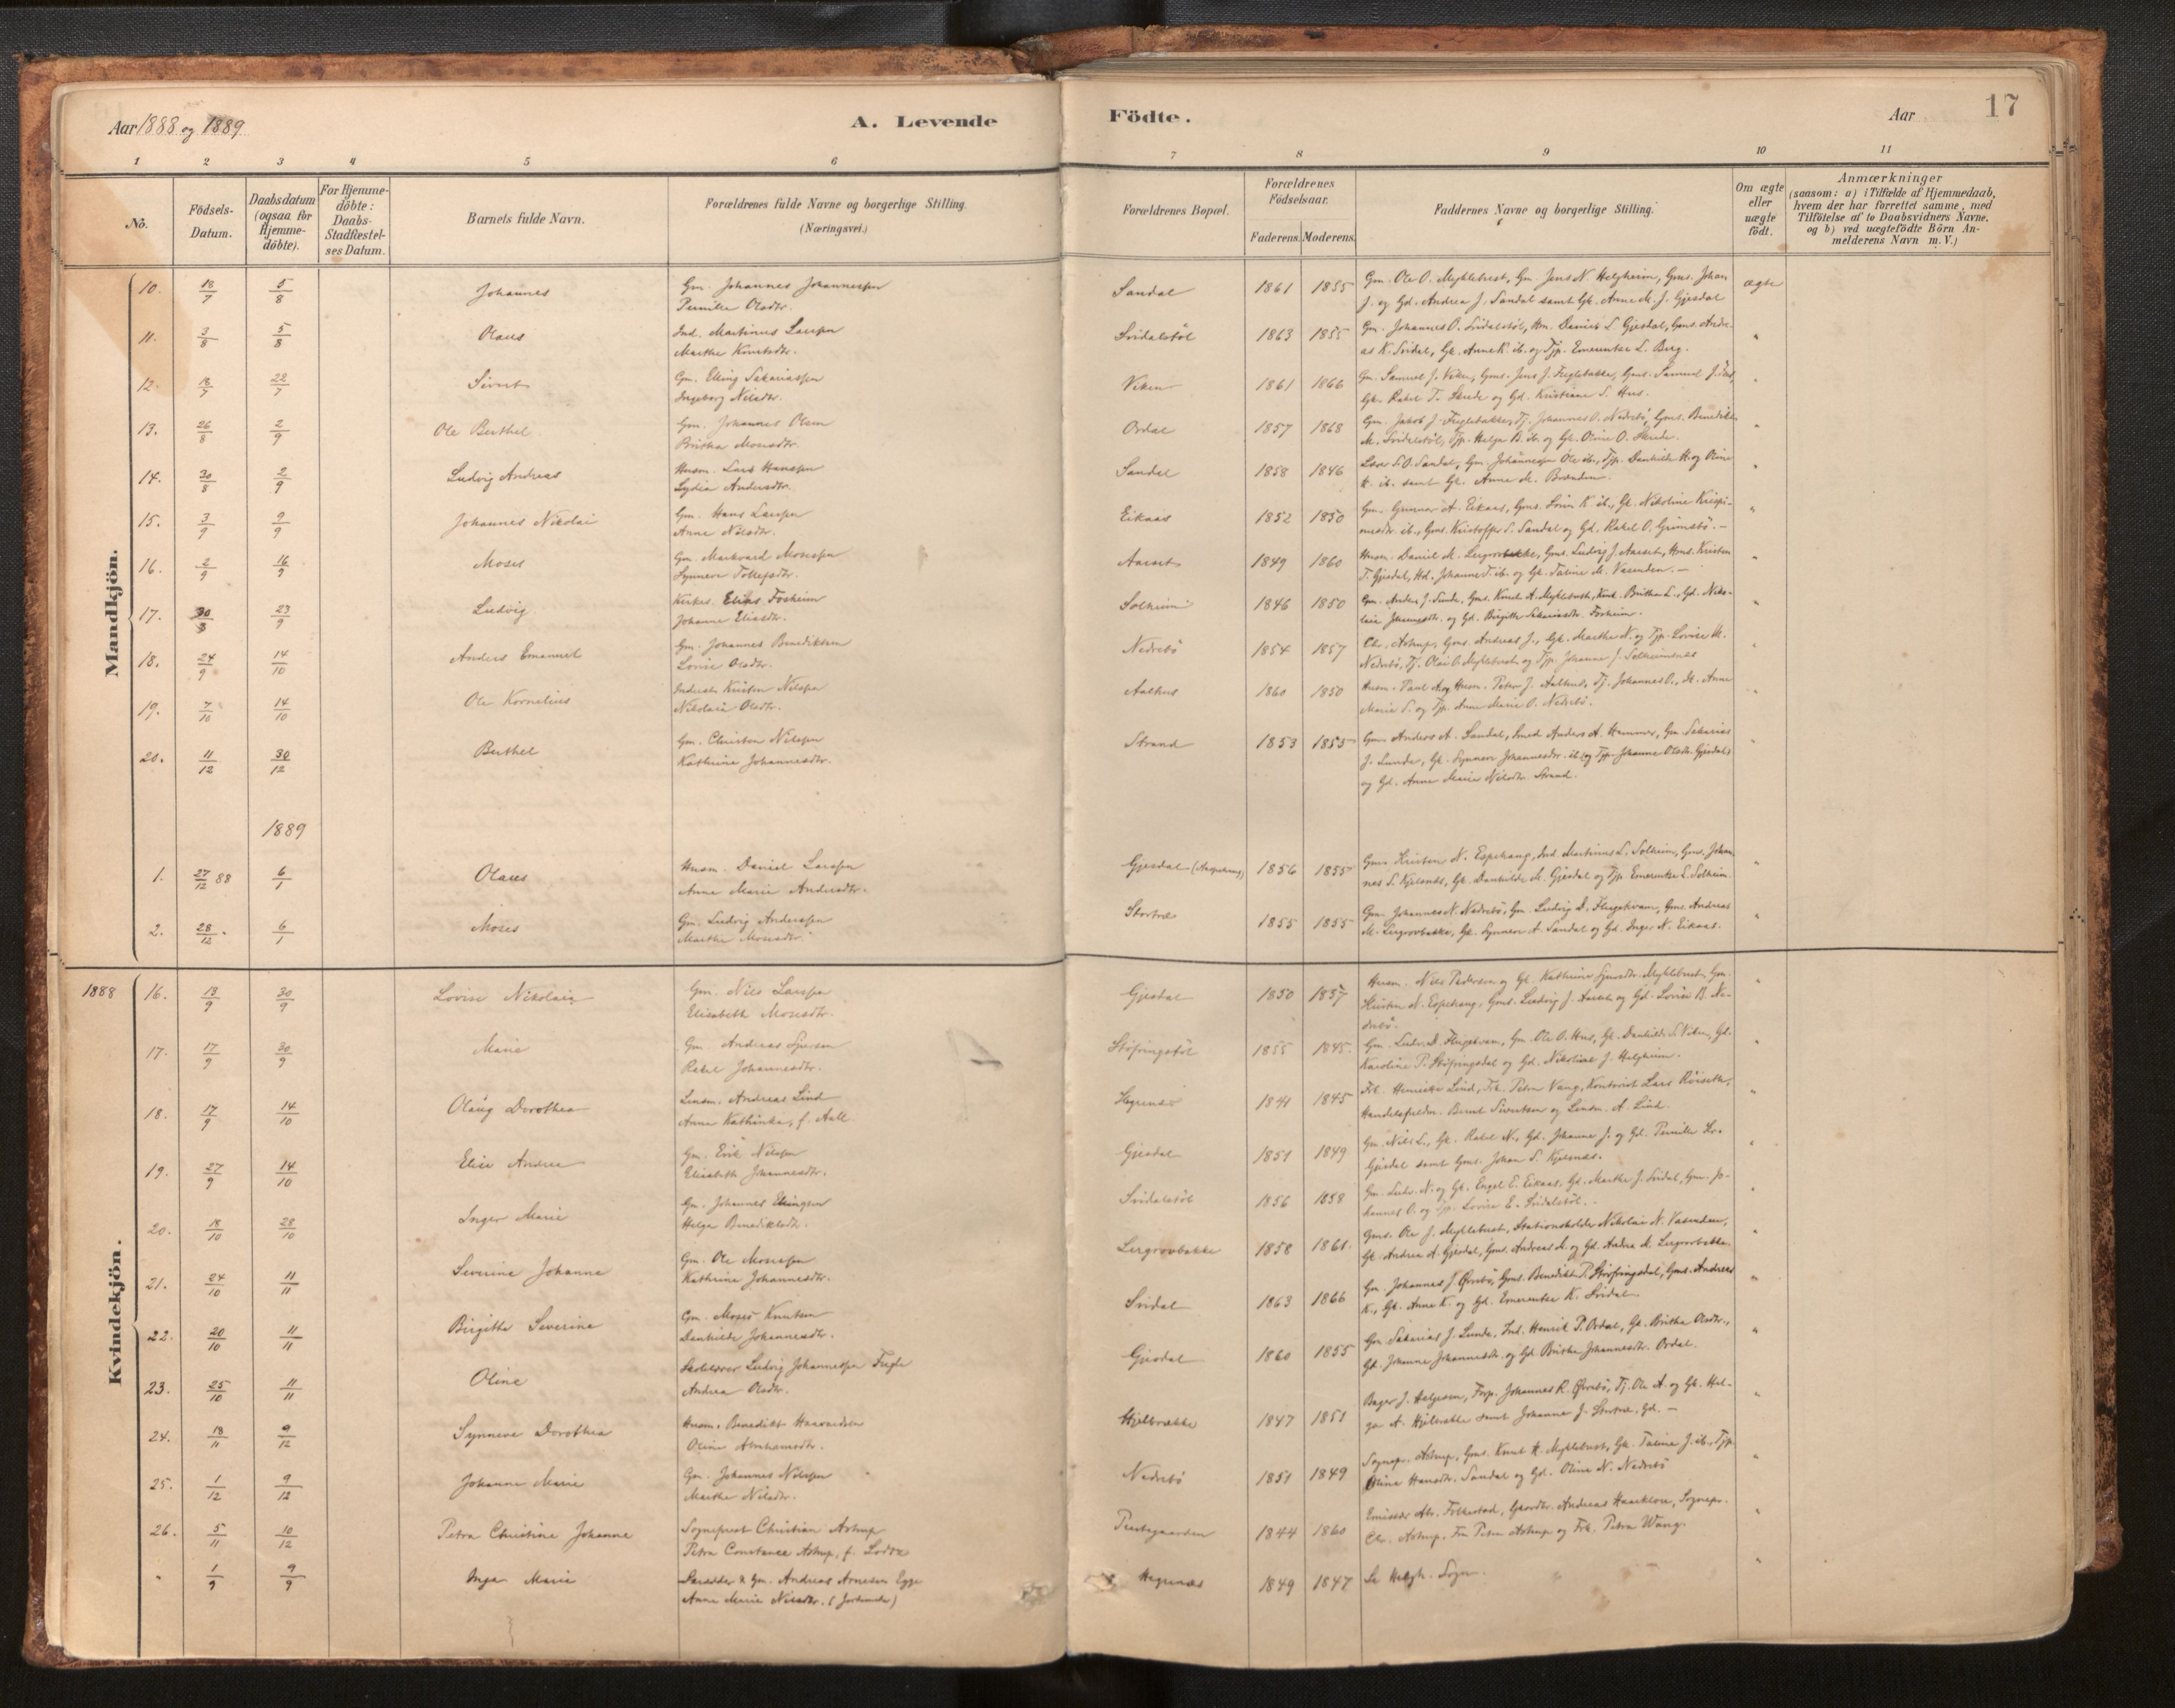 Aar 1888 og 1889
A. Levende Födte.
Aar
17
1 2 3 4 5 6 7 8 9 10 11
No.
Födsels-Datum.
Daabsdatum (ogsaa for Hjemme-döbte).
For Hjemme-döbte: Daabs-Stadfæstel-ses Datum.
Barnets fulde Navn.
Forældrenes fulde Navne og borgerlige Stilling. (Næringsvei.)
Forældrenes Bopæl.
Forældrenes Födselsaar.
Faderens. Moderens.
Faddernes Navne og borgerlige Stilling.
Om ægte eller uægte födt.
Anmærkninger
(saasom: a) i Tilfælde af Hjemmedaab,
hvem der har forrettet samme, med
Tilföielse af to Daabsvidners Navne.
og b) ved uægtefödte Börn An-
melderens Navn m. V.)
Mandkjön.
10. 18/7 5/8 Johannes Gm. Johannes Johannessen Sandal 1861 1855 Gm. Ole O. Myklebust, Gm. Jens N. Helgheim, Gms. Johan ægte
Pernille Olsdtr. J. og Gd. Andrea J. Sandal samt Gk. Anne M. J. Gjesdal
11. 3/8 5/8 Olaus Ind. Martinus Larsen Svidalstöl 1863 1855 Gm. Johannes O. Svidalstöl, Hm. Daniel L. Gjesdal, Gms. Andre- "
Marthe Knutsdtr. as K. Svidal, Gk. Anne K. ib. og Tjp. Emerentse L. Berg.
12. 18/7 22/7 Sivert Gm. Elling Sakariassen Viken 1861 1866 Gm. Samuel J. Viken, Gms. Jens J. Fuglebakke, Gms. Samuel J. "
Ingeborg Nilsdtr. Gk. Rakel T. Skrede og Gd. Kristiane S. Hus.
13. 26/8 2/9 Ole Berthel Gm. Johannes Olsen Ordal 1857 1868 Gm. Jakob J. Fuglebakke, Tj. Johannes O. Nedrebö, Gms. Benedikt "
Britha Monsdtr. M. Svidalstöl, Tjp. Helga B. ib. og Gk. Oline O. Skrede.
14. 30/8 2/9 Ludvig Andreas Husm. Lars Hanssen Sandal 1858 1846 S. O. Sandal, Gm. Johannes Ole ib., Tjp. Danhilde H. og Oline "
Lydia Andersdtr. H. ib. samt Gk. Anne M. Brænden.
15. 3/9 9/9 Johannes Nikolai Gm. Hans Larsen Eikaas 1852 1850 Gm. Gunnar A. Eikaas, Gms. K. ib., Gk. Nikoline Krispi- "
Anne Nilsdtr. nusdtr. ib., Gms. Kristoffer S. Sandal og Gd. Rakel O. Grimsbö.
16. 2/9 16/9 Moses Gm. Markvard Monssen Aarset 1849 1860 Husm. Daniel M. Lergrovbakke, Gms. Ludvig J. Aarset, Hms. Kristen "
Synneve Tollefsdtr. T. Gjesdal, Hd. Johanne T. ib. og Gk. Taline M. Vasenden.
17. 30/8 23/9 Ludvig Kirkes. Elias Forheim Solheim 1846 1850 Gm. Anders J. Lunde, Gms. Knud A. Myklebust, Britha L., Gd. Niko- "
Johanne Eliasdtr. laia Johannesdtr. og Gd. Birgitte Sakariasdtr. Forheim.
18. 24/9 14/10 Anders Emanuel Gm. Johannes Benediktsen Nedrebö 1854 1857 Chr. Astrup, Gms. Andreas J., Gk. Marthe N. og Tjp. Lovise M. "
Lovise Olsdtr. Nedrebö, Tj. Olai O. Myklebust og Tjp. Johanne J. Solheimsnes
19. 7/10 14/10 Ole Kornelius Inderst Kristen Nilssen Aalhus 1860 1850 Husm. Paul A. og Husm. Peter J. Aalhus, Tj. Johannes O., Anne "
Nikolaia Olsdtr. Marie S. og Tjp. Anne Marie O. Nedrebö.
20. 11/12 30/12 Berthel Gm. Christen Nilssen Strand 1853 1855 Gm. Anders A. Sandal, Smed Anders A. Hammer, Gm. Sakarias "
Kathrine Johannesdtr. J. Lunde, Gk. Synneve Johannesdtr. ib. (og Tjp. Johanne Olsdtr. Gjesdal)
og Gd. Anne Marie Nilsdtr. Strand.
1889
1. 27/12 88 6/1 Olaus Husm. Daniel Larssen Gjesdal 1856 1855 Gm. Kristen N. Espehaug, Ind. Martinus L. Solheim, Gms. Johan- "
Anne Marie Andersdtr. nes S. Kjelsnes, Gk. Danhilde M. Gjesdal og Tjp. Emerentse L. Solheim
2. 28/12 " 6/1 Moses Gm. Ludvig Anderssen Stortræ 1855 1855 Gm. Johannes N. Nedrebö, Gm. Ludvig D. Flugekvam, Gms. Andreas "
Marthe Monsdtr. M. Lergrovbakke, Gk. Synneve A. Sandal og Gd. Inger N. Eikaas.
Kvindekjön.
1888 16. 13/9 30/9 Lovise Nikolaia Gm. Nils Larssen Gjesdal 1850 1857 Husm. Nils Pedersen og Gk. Kathrine Myklebust, Gm. "
Elisabeth Monsdtr. Kristen N. Espehaug, Gms. Ludvig J. Aarset og Gd. Lovise B. Ne-
drebö.
17. 17/9 30/9 Marie Gm. Andreas Sjursen Stöfringstöl 1855 1845. Gm. Ludv. D. Flugekvam, Gm. Ole O. Hus, Gk. Danhilde S. Viken, Gd. "
Rakel Johannesdtr. Karoline P. Stöfringsdal og Gd. Nikoline J. Helgheim.
18. 17/9 14/10 Olaug Dorothea Lensm. Andreas Lind Hegrenæs 1841 1845 Frk. Henriette Lind, Frk. Petra Vang, Kontorist Lars Röiseth, "
Anna Kathinka, f. Aall Handelsfuldm. Bernt Sivertsen og Lensm. A. Lind.
19. 27/9 14/10 Elise Andrea Gm. Erik Nilssen Gjesdal 1851 1849 Gm. Nils L., Gk. Rakel N., Gd. Johanne J. og Gd. Pernille "
Elisabeth Johannesdtr. Gjesdal samt Gms. Johan S. Kjelsnes.
20. 18/10 28/10 Inger Marie Gm. Johannes Ellingsen Svidalstöl 1856 1858 Gm. Ludv. N. og Gk. Engel E. Eikaas, Gd. Marthe J. Svidal, Gm. Jo- "
Helga Benediktsdtr. hannes O. og Tjp. Lovise E. Svidalstöl.
21. 24/10 11/11 Severine Johanne Gm. Ole Monssen Lergrovbakke 1858 1861. Gms. Ole J. Myklebust, Stationsholder Nikolai N. Vasenden, "
Kathrine Johannesdtr. Gk. Andrea A. Gjesdal, Gms. Andreas M. og Gd. Andrea M. Lergrovbakke.
22. 20/10 11/11 Birgitte Severine Gm. Moses Knutsen Svidal 1863 1866 Gm. Johannes J. Övrebö, Gms. Benedikt P. Stöfringsdal, Gms. Andreas "
Danhilde Johannesdtr. K., Gk. Anne K. og Gd. Emerentse K. Svidal
23. 25/10 11/11 Oline Skolelærer Ludvig Johannessen Fugle Gjesdal 1860 1855 Gm. Sakarias J. Lunde, Ind. Henrik P. Ordal, Gk. Britha Olsdtr., "
Andrea Olsdtr. Gd. Johanne Johannesdtr. og Gd. Britha Johannesdtr. Ordal.
24. 18/11 9/12 Synneve Dorothea Husm. Benedikt Haavardsen Hjelbrække 1847 1851 Bager J. Helgesen, Forp. Johannes R. Övrebö, Tj. Ole A. og Gk. Hel- "
Oline Abrahamsdtr. ga A. Hjelbrække samt Johanne J. Stortræ, Gd.
25. 1/12 9/12 Johanne Marie Gm. Johannes Nilssen Nedrebö 1851 1849 Sognepr. Astrup, Gms. Knut A. Myklebust, Gk. Taline J. ib., Tjp. "
Marthe Nilsdtr. Oline Hansdtr. Sandal og Gd. Oline N. Nedrebö
26. 5/11 10/12 Petra Christine Johanne Sogneprest Christian Astrup Prestegaarden 1844 1860 Emissær Abr. Folkestad, Gaardbr. Andreas Haarklou, Sognepr. "
Petra Constance Astrup, f. Chr. Astrup, Fru Petra Astrup og Frk. Petra Wang.
" 1/9 9/9 Inga Marie & Gm. Andreas Arnesen Egge Hegrenæs 1849 1847 Se Helgh. Sogn. "
Anne Marie Nilsdtr.